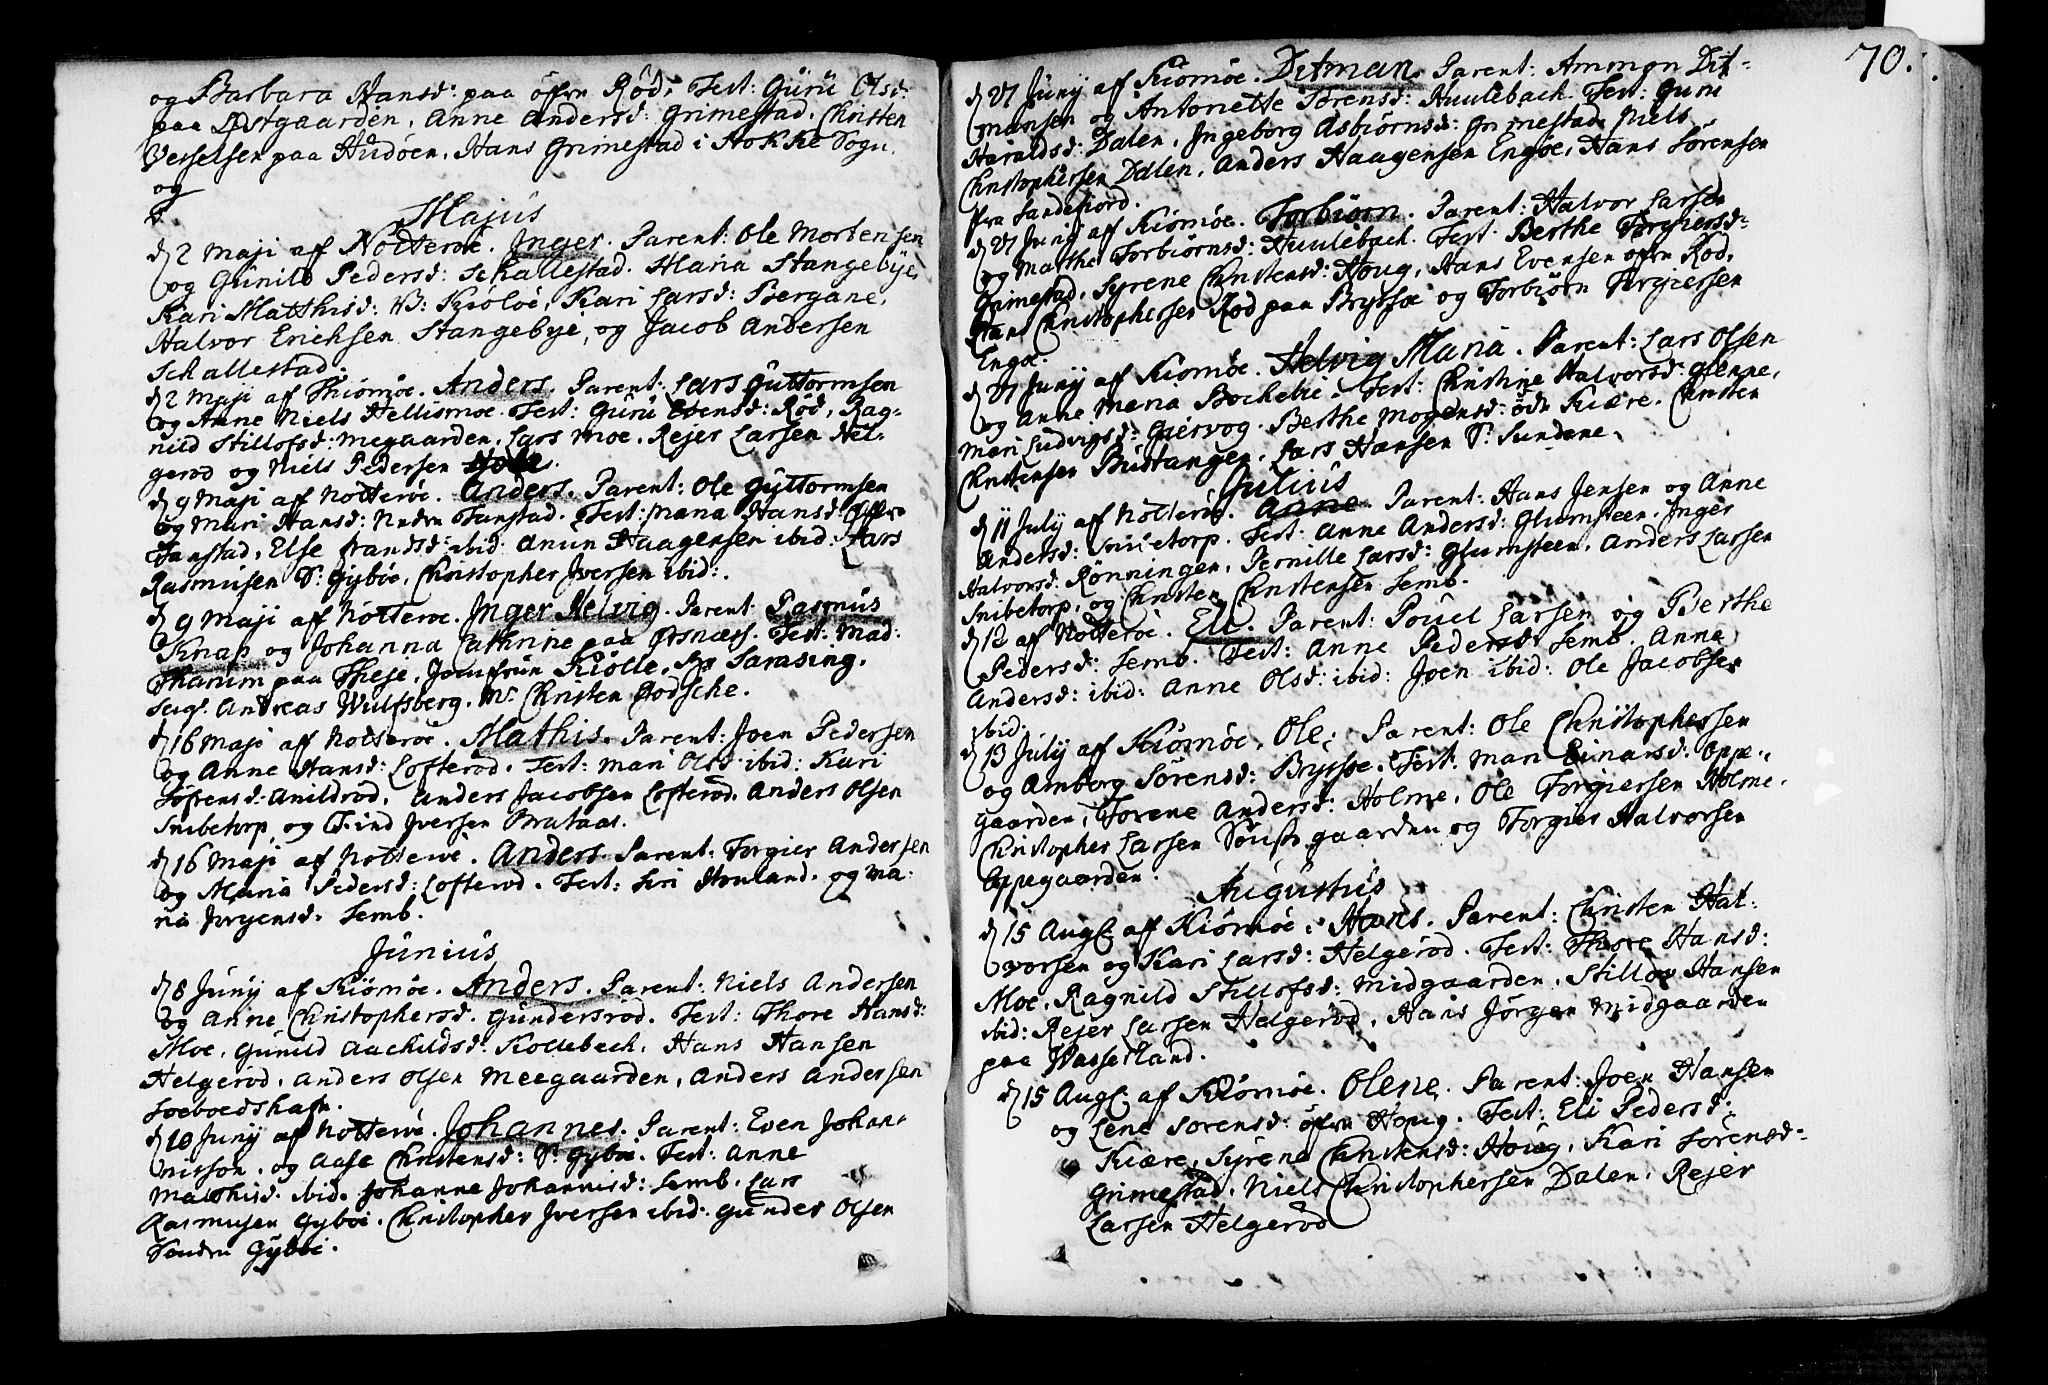 og Barbara Hansd: paa öfvn Rød, Test: Guru Olsd:
paa Østgaarden, Anne Andersd: Grimestad, Christen
Vesselsen paa Hudöen, Hans Grimestad i Stokke Sogn.
og
Majus
d 2 Maji af Nötteröe. Inger. Parent: Ole Mortensen
og Gunild Pedersd: Schallestad. Maria Stangebye,
Kari Matthisd: V: Kiölöe, Kari Larsd: Bergane,
Halvor Erichsen Stangebye, og Jacob Andersen
Schallestad.
d 2 Maji af Thiömöe. Anders. Parent: Lars Guttormsen
og Anne Niels Hellismoe. Test: Guru Evensd: Rød, Rag-
nild Stillofsd: Megaarden, Lars Moe, Rejer Larsen Hel-
gerod og Niels Pedersen
d 9 Maji af Nötteröe. Anders. Parent: Ole Guttormsen
og Mari Hansd: Nedre Fanstad. Test: Maria Hansd: Öfvr
Fanstad, Else Frandsd: ibid: Anun Haagensen ibid: Lars
Rasmusen S: Gyböe, Christopher Iversen ibid:.
d 9 Maji af Nötteröe. Inger Helvig. Parent: Rasmus
Knap og Johanna Cathrine paa Orsnæss. Test: Mad:
Tharum paa Theje, Jomfrun Kiölle, Sr Sarasing,
Seigr Andreas Wulfsberg, Mr Christen Godsche.
d 16 Maji af Nötteröe. Mathis. Parent: Joen Pedersen
og Anne Hansd: Lofterød. Test: Mari Olsd: ibid: Kari
Söfrensd: Anildrød, Anders Jacobsen Lofterød, Anders Olsen
Snibetorp og Eivind Iversen Brataas.
d 16 Maji af Nötteröe. Anders. Parent: Torgier Andersen
og Maria Pedersd: Lofterød. Test: Siri Houland, og Ma-
ria Jörgensd: Semb.
Junius
d 8 Junij af Kiömöe. Anders. Parent: Niels Andersen
og Anne Christophersd: Gundersrød. Test: Thore Hansd:
Moe, Gunild Aschildsd: Kollebech, Hans Hansen
Helgerød, Anders Olsen Meegaarden, Anders Andersen
Soeboedshafn.
d 10 Junij af Nötteröe. Johannes. Parent: Even Johan-
nisson, og Aase Christensd: S: Gyböe. Test: Anne
Mathisd: ibid. Johanne Johannisd: Semb. Lars
Rasmusen Gyböe. Christopher Iversen ibid: Gunder Olsen
Sendre Gyböe.
70.
d 27 Junij af Kiömöe. Ditman. Parent: Ammon Dit-
mansen og Antonette Sörensd: Huulebach. Test: Guru
Haraldsd: Dalen, Ingeborg Asbiörnsd: Grimestad, Niels
Christophersen Dalen, Anders Haagensen Engöe, Hans Sörensen
fra Sandefiord.
d 27 Junij af Kiömöe. Torbiörn. Parent: Halvor Larsen
og Marthe Torbiörnsd: Huulebach. Test: Berthe Torgiersd:
Grimestad, Syrene Christensd: Houg, Hans Evensen öfvn Rød,
Hans Christophersen Rød paa Brysöe og Torbiörn Torgiersen
Engöe.
d 27 Junij af Kiömöe. Helvig Maria. Parent: Lars Olsen
og Anne Maria Bochebie. Test: Christine Halvorsd: Glenne,
Mari Ludvigsd: Giervog. Berthe Mogensd: öde Kiære. Christen
Christensen Bustangen, Lars Hansen S: Sundene.
Julius
d 11 July af Nötteröe. Anne. Parent: Hans Jensen og Anne
Andersd: Snibetorp. Test: Anne Andersd: Glumsteen, Inger
Halvorsd: Rönningen, Pernille Larsd: Glumsteen. Anders Larsen
Snibetorp, og Christen Christensen Semb.
d 12 af Nötteröe. Eli. Parent: Pouel Larsen og Berthe
Pedersd: Semb. Test: Anne Pedersd: Semb. Anne
Andersd: ibid: Anne Olsd: ibid: Joen ibid: Ole Jacobsen
ibid.
d 13 July af Kiömöe. Ole. Parent: Ole Christophersen
og Amborg Sörensd: Brysöe. Test: Mari Einarsd: Oppe-
gaarden, Torene Andersd: Holme, Ole Torgiersen Holme,
Christopher Larsen Söustr gaarden og Torgier Halvorsen
Oppegaarden.
Augustus
d 15 Augl. af Kiömöe. Hans. Parent: Christen Hal-
vorsen og Kari Larsd: Helgerød. Test: Thore Hansd:
Moe, Ragnild Stillofsd: Midgaarden, Stillov Hansen
ibid: Rejer Larsen Helgerød, Hans Jörgen Midgaarden
paa Wasserland.
d 15 Augl. af Kiömöe. Olene. Parent: Joen Hansen
og Lene Sorensd: öfvn Houg. Test: Eli Pedersd:
Kiære, Syrene Christensd: Houg, Kari Sörensd:
Grimestad. Niels Christophersen Dalen. Rejer
Larsen Helgerød